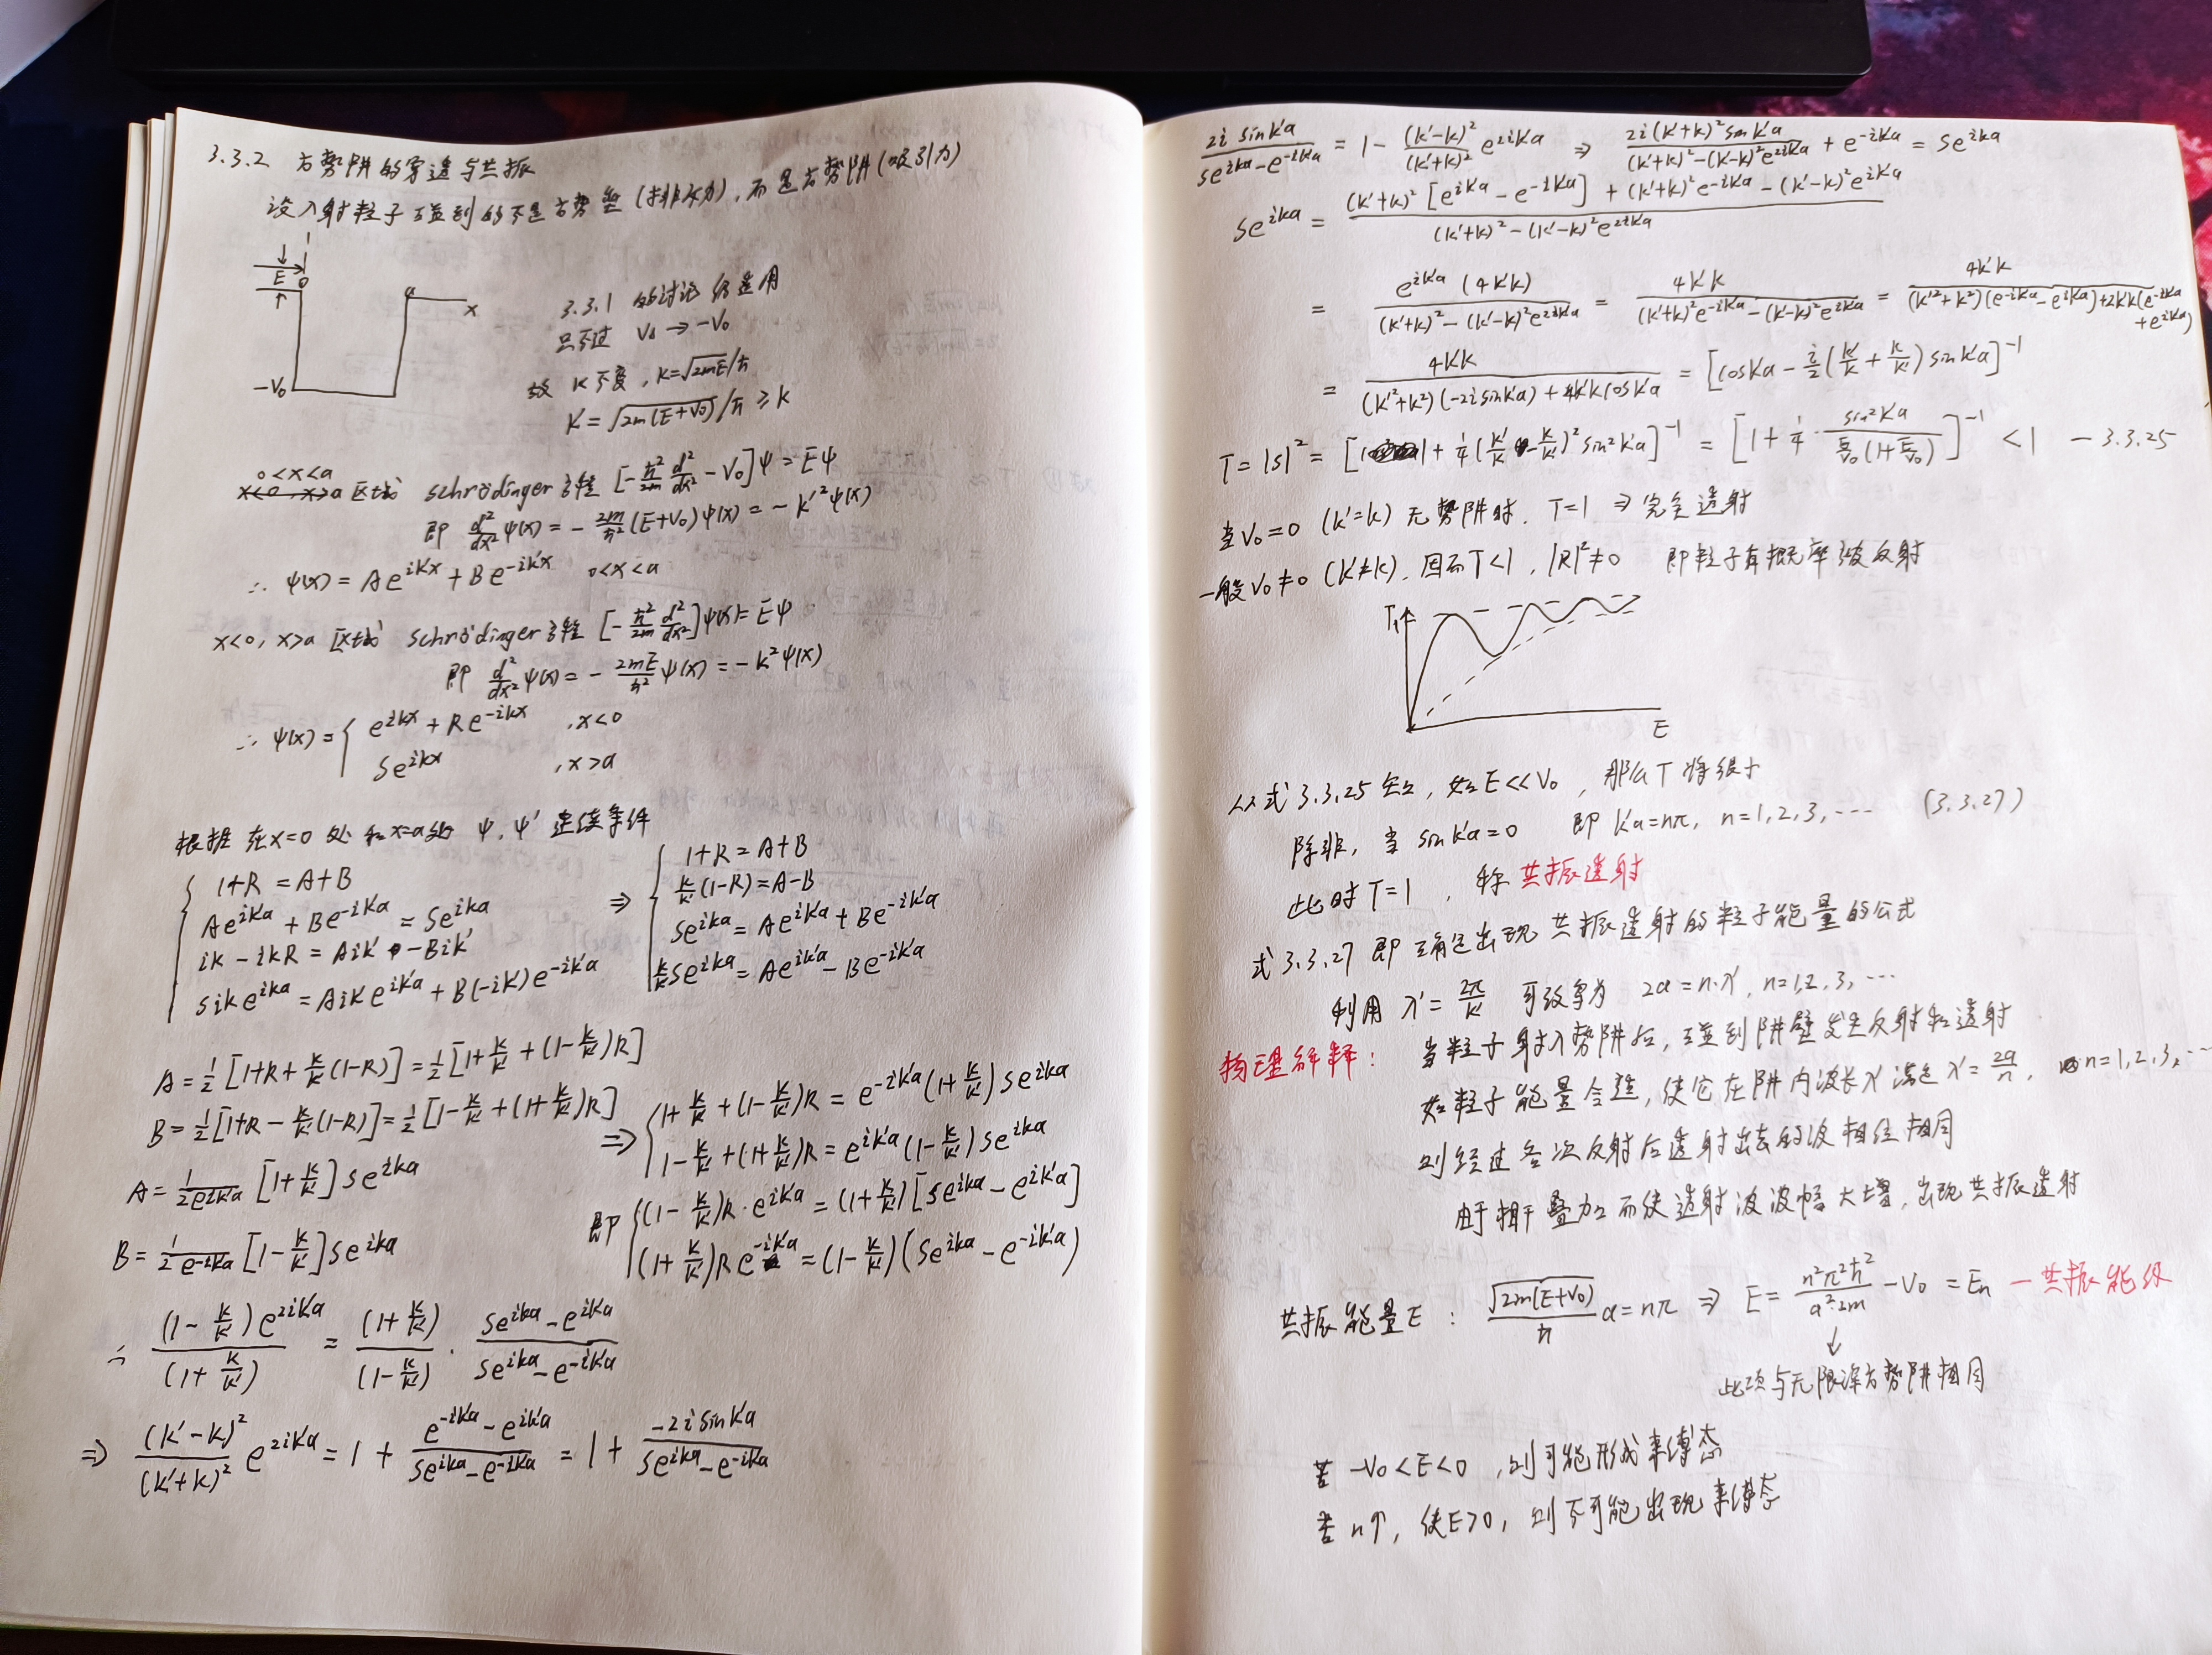 3.3.2 方势阱的穿透与共振
设入射粒子碰到的不是方势垒(排斥力),而是方势阱(吸引力)
E
0
a
x
-V₀
3.3.1 的讨论仍适用
只不过 V₀ → -V₀
故 k不变, k=√(2mE)/ħ
k'=√(2m(E+V₀))/ħ ≥ k
0<x<a
区域 schrödinger方程 [-ħ²/2m d²/dx² - V₀]ψ = Eψ
即 d²/dx² ψ(x) = - 2m/ħ² (E+V₀)ψ(x) = - k'²ψ(x)
∴ ψ(x) = Ae^{ik'x} + Be^{-ik'x} 0<x<a
x<0, x>a 区域 schrödinger方程 [-ħ²/2m d²/dx²]ψ(x) = Eψ
即 d²/dx² ψ(x) = - 2mE/ħ² ψ(x) = - k²ψ(x)
∴ ψ(x) = { e^{ikx} + Re^{-ikx} , x<0
Se^{ikx} , x>a
根据在x=0处和x=a处 ψ, ψ' 连续条件
{ 1+R = A+B
Ae^{ik'a} + Be^{-ik'a} = Se^{ika}
ik - ikR = Aik' - Bik'
Sike^{ika} = Aik'e^{ik'a} + B(-ik')e^{-ik'a}
⇒ { 1+R = A+B
k/k'(1-R) = A-B
Se^{ika} = Ae^{ik'a} + Be^{-ik'a}
k/k' Se^{ika} = Ae^{ik'a} - Be^{-ik'a}
A = 1/2 [1+R + k/k'(1-R)] = 1/2 [1+k/k' + (1-k/k')R]
B = 1/2 [1+R - k/k'(1-R)] = 1/2 [1-k/k' + (1+k/k')R]
A = 1/(2e^{ik'a}) [1+k/k'] Se^{ika}
B = 1/(2e^{-ik'a}) [1-k/k'] Se^{ika}
⇒ { 1+k/k' + (1-k/k')R = e^{-ik'a}(1+k/k') Se^{ika}
1-k/k' + (1+k/k')R = e^{ik'a}(1-k/k') Se^{ika}
即 { (1-k/k')R·e^{ik'a} = (1+k/k')[Se^{ika} - e^{ik'a}]
(1+k/k')R e^{-ik'a} = (1-k/k')(Se^{ika} - e^{-ik'a})
∴ (1-k/k')e^{2ik'a}/(1+k/k') = (1+k/k')/(1-k/k') · (Se^{ika} - e^{ik'a})/(Se^{ika} - e^{-ik'a})
⇒ (k'-k)²/(k'+k)² e^{2ik'a} = 1 + (e^{-ik'a} - e^{ik'a})/(Se^{ika} - e^{-ik'a}) = 1 + (-2i sink'a)/(Se^{ika} - e^{-ik'a})
2i sink'a/(Se^{ika} - e^{-ik'a}) = 1 - (k'-k)²/(k'+k)² e^{2ik'a} ⇒ 2i(k'+k)² sink'a/((k'+k)² - (k'-k)²e^{2ik'a}) + e^{-ik'a} = Se^{ika}
Se^{ika} = ((k'+k)²[e^{ik'a} - e^{-ik'a}] + (k'+k)²e^{-ik'a} - (k'-k)²e^{ik'a})/((k'+k)² - (k'-k)²e^{2ik'a})
= e^{ik'a}(4k'k)/((k'+k)² - (k'-k)²e^{2ik'a}) = 4k'k/((k'+k)²e^{-ik'a} - (k'-k)²e^{ik'a}) = 4k'k/((k'²+k²)(e^{-ik'a} - e^{ik'a}) + 2k'k(e^{-ik'a} + e^{ik'a}))
= 4k'k/((k'²+k²)(-2i sink'a) + 4k'k cosk'a) = [cosk'a - i/2 (k'/k + k/k') sink'a]⁻¹
T = |S|² = [1 + 1/4 (k'/k - k/k')² sin²k'a]⁻¹ = [1 + 1/4 · sin²k'a/(E/V₀(1+E/V₀))]⁻¹ < 1 — 3.3.25
当V₀=0 (k'=k) 无势阱时, T=1 ⇒ 完全透射
一般V₀≠0 (k'≠k), 因而T<1, |R|²≠0 即粒子有概率被反射
T
1
E
从式3.3.25知, 如E<<V₀, 那么T将很小
除非, 当 sink'a=0 即 k'a=nπ, n=1,2,3,⋯ (3.3.27)
此时T=1 , 称共振透射
式3.3.27即确定出现共振透射的粒子能量的公式
利用 λ'=2π/k' 可改写为 2a=n·λ', n=1,2,3,⋯
物理解释: 当粒子射入势阱后, 碰到阱壁发生反射和透射
如粒子能量合适, 使它在阱内波长λ'满足 λ'=2a/n, n=1,2,3,⋯
则经过各次反射后透射出去的波相位相同
由于相干叠加而使透射波波幅大增, 出现共振透射
共振能量E : √(2m(E+V₀))/ħ a=nπ ⇒ E= n²π²ħ²/(a²·2m) - V₀ = En —共振能级
↓
此项与无限深方势阱相同
若 -V₀<E<0 , 则可能形成束缚态
若n↑, 使E>0, 则不可能出现束缚态